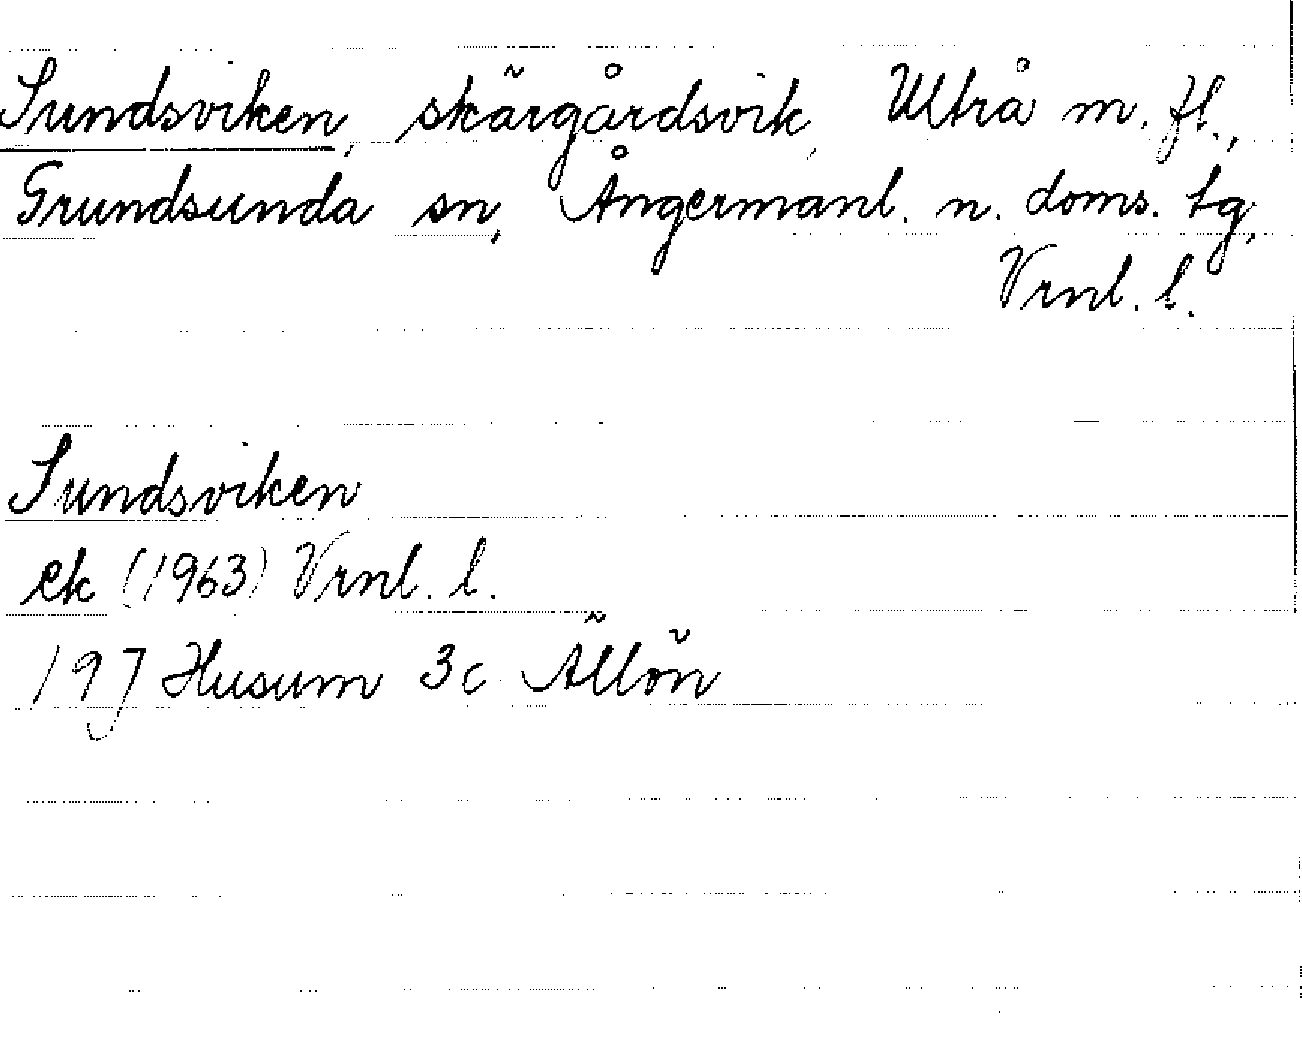 Sundsviken, skärgårdsvik, Ultrå m. fl.,
Grundsunda sn, Ångermanl. n. doms. tg,
Vrnl. l.
Sundsviken
ek (1963) Vrnl. l.
19J Husum 3c Ällön